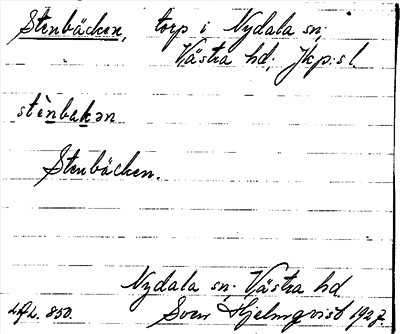 Stenbäcken, torp i Nydala sn;
Västra hd; Jkp:s l
stènbakən
Stenbäcken.
Nydala sn; Västra hd
LAL. 850. Sven Hjelmqvist 1927.